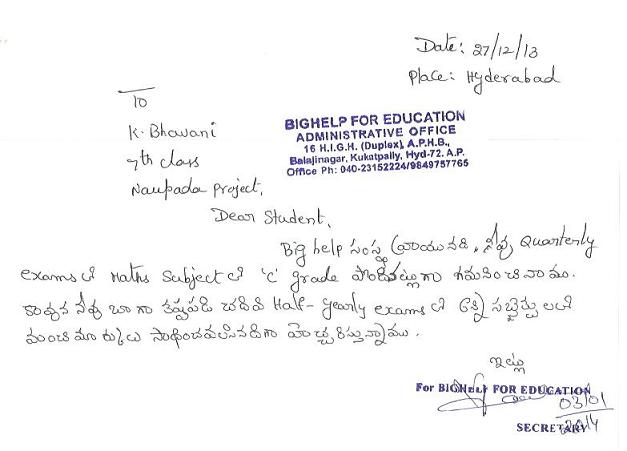 Date: 27/12/13
Place: Hyderabad
To
K. Bhavani
7th class
Naupada Project,
BIGHELP FOR EDUCATION
ADMINISTRATIVE OFFICE
16 H.I.G.H. (Duplex), A.P.H.B.,
Balajinagar, Kukatpally, Hyd-72. A.P.
Office Ph: 040-23152224/9849757765
Dear Student,
Big help సంస్థ వ్రాయునది, నీవు Quarterly
exams లో Maths Subject లో 'C' grade పొందినట్లుగా గమనించినాము.
కావున నీవు బాగా కష్టపడి చదివి Half-yearly exams లో అన్ని సబ్జెక్టు లలో
మంచి మార్కులు సాధించవలసినదిగా హెచ్చరిస్తున్నాము.
ఇట్లు
For BIGHELP FOR EDUCATION
03/01
2014
SECRETARY